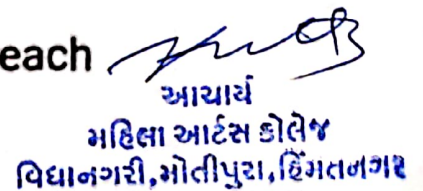 each
આચાર્ય
મહિલા આર્ટસ કોલેજ
વિદ્યાનગરી,મોતીપુરા,હિંમતનગર